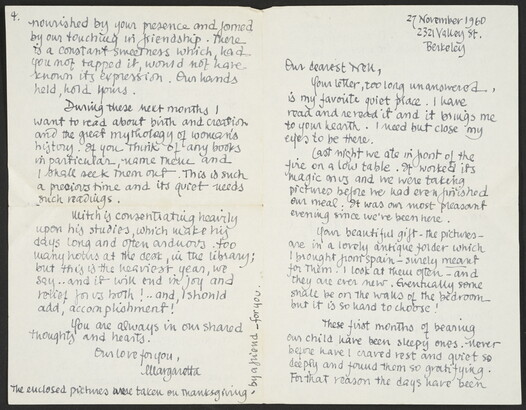 27 November 1960
2321 Valley St.
Berkeley
Our dearest Nell,
Your letter, too long unanswered,
is my favorite quiet place. I have
read and reread it and it brings me
to your hearth. I need but close my
eyes to be there.
Last night we ate in front of the
fire on a low table. It worked its
magic on us and we were taking
pictures before we had even finished
our meal. It was our most pleasant
evening since we've been here.
Your beautiful gift - the pictures -
are in a lovely antique folder which
I brought from Spain - surely meant
for them. I look at them often - and
they are ever new. Eventually some
shall be on the walls of the bedroom -
but it is so hard to choose!
These first months of bearing
our child have been sleepy ones - never
before have I craved rest and quiet so
deeply and found them so gratifying.
For that reason the days have been
4.
nourished by your presence and formed
by our touching in friendship. There
is a constant sweetness which, had
you not tapped it, would not have
known its expression. Our hands
held, hold yours.
During these next months I
want to read about birth and creation
and the great mythology of woman's
history. If you think of any books
in particular, name them and
I shall seek them out. This is such
a precious time and its quiet needs
such readings.
Mitch is concentrating heavily
upon his studies, which make his
days long and often arduous. Too
many hours at the desk, in the library;
but this is the heaviest year, we
say.. and it will end in joy and
relief for us both! .. and, I should
add, accomplishment!
You are always in our shared
thoughts and hearts.
Our love for you,
Margaretta
The enclosed pictures were taken on Thanksgiving.
by a friend - for you.